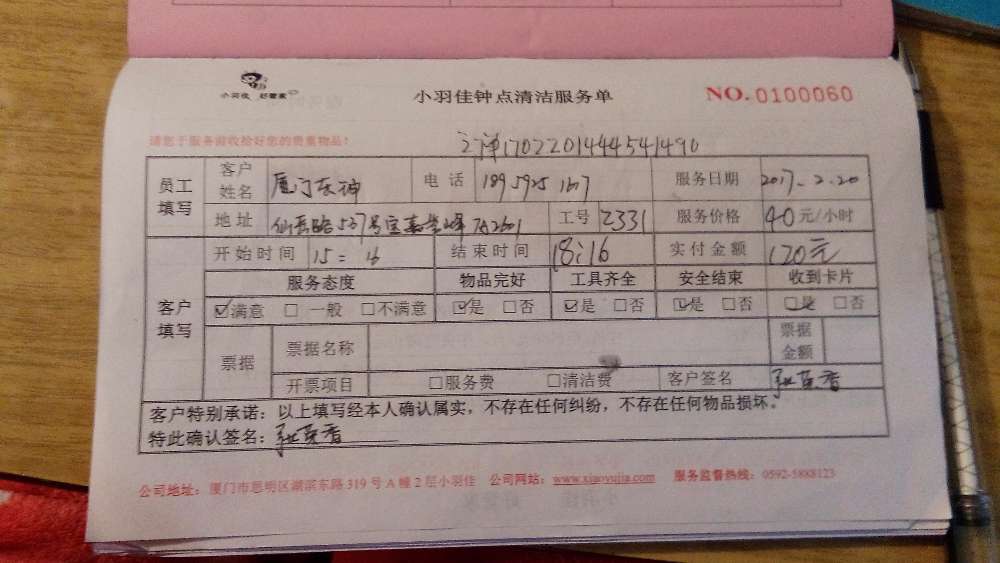 小羽佳 好管家
小羽佳钟点清洁服务单
NO.0100060
请您于服务前收拾好您的贵重物品!
1702201444541490
员工填写 客户姓名 厦门东神 电话 189 5925 1617 服务日期 2017.2.20
地址 仙岳路537号宝嘉誉峰 7A2601 工号 2331 服务价格 40元/小时
客户填写 开始时间 15:16 结束时间 18:16 实付金额 120元
服务态度 物品完好 工具齐全 安全结束 收到卡片
☑满意 □一般 □不满意 ☑是 □否 ☑是 □否 ☑是 □否 ☑是 □否
票据 票据名称 票据金额
开票项目 □服务费 □清洁费 客户签名
客户特别承诺:以上填写经本人确认属实,不存在任何纠纷,不存在任何物品损坏。
特此确认签名:
公司地址:厦门市思明区湖滨东路319号A幢2层小羽佳 公司网站:www.xiaoyujia.com 服务监督热线:0592-5888123